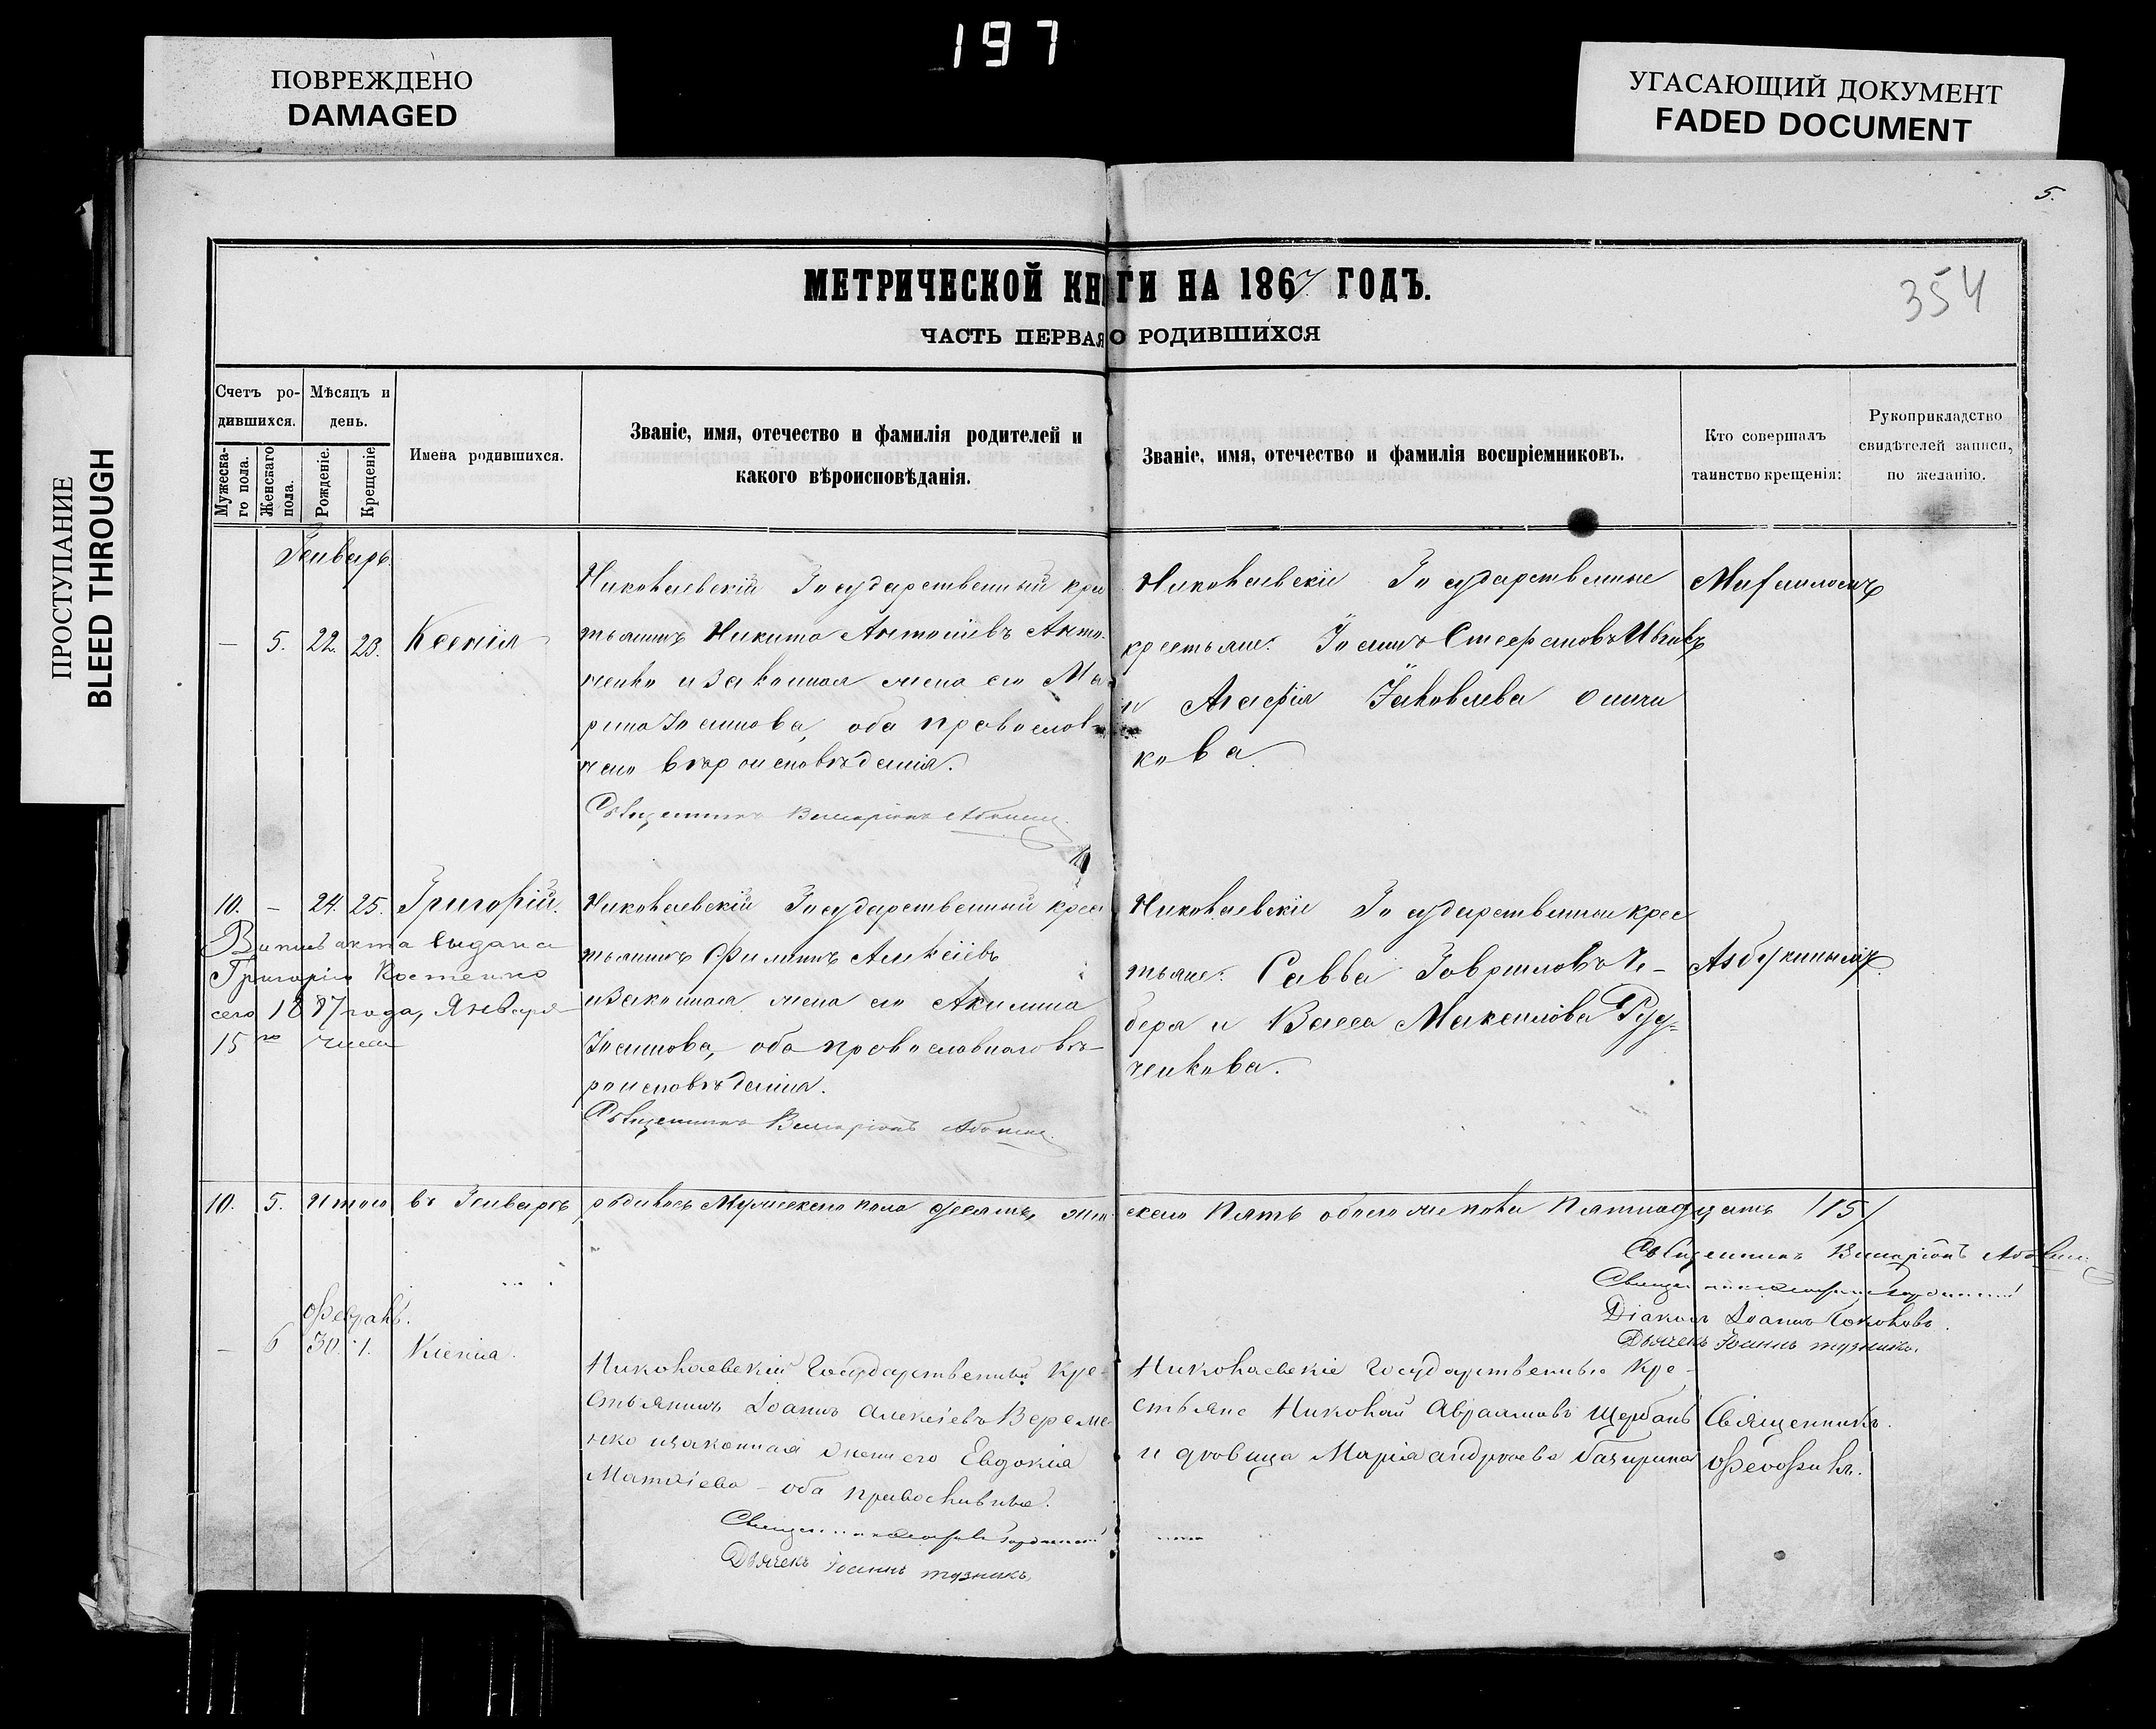 197
ПОВРЕЖДЕНО
DAMAGED
УГАСАЮЩИЙ ДОКУМЕНТ
FADED DOCUMENT
ПРОСТУПАНИЕ
BLEED THROUGH
5.
354
МЕТРИЧЕСКОЙ КНИГИ НА 1867 ГОДЪ.
ЧАСТЬ ПЕРВАЯ О РОДИВШИХСЯ
Счетъ ро-
дившихся.
Мужеска-
го пола.
Женскаго
пола.
Мѣсяцъ и
день.
Рожденіе.
Крещеніе
Имена родившихся.
Званіе, имя, отечество и фамилія родителей и
какого вѣроисповѣданія.
Званіе, имя, отечество и фамилія воспріемниковъ.
Кто совершалъ
таинство крещенія:
Рукоприкладство
свидѣтелей записи,
по желанію.
Генварь
— 5. 22. 23. Ксенія
Николаевскій Государственный крес
тьянинъ Никита Антоніевъ Анто-
ненко и законная жена его Ма
рина Іоаннова, оба православ-
наго вѣроисповѣданія.
Священникъ Виссаріонъ
Николаевскіе Государственные
крестьяне: Іоаннъ Стефановъ
и Агафія Іаковлева
кова
10. — 24. 25. Григорій.
Выпись акта выдана
Григорію Костенко
сего 1887 года, Января
15го числа
Николаевскій Государственный крес
тьянинъ Филиппъ Алексіевъ
и законная жена его Акилина
Іоаннова, оба православнаго вѣ-
роисповѣданія.
Священникъ Виссаріонъ
Николаевскіе Государственные крес
тьяне: Савва Гавриловъ Че-
беря и Васса Максимова Руд-
ченкова.
10. 5. Итого въ Генварѣ родилось Мужескаго пола десять, жен-
скаго Пять обоего же пола Пятнадцать /15/
Священникъ Виссаріонъ
Діаконъ Іоаннъ
Дьячекъ Іоаннъ Тузникъ.
Февраль.
— 6 30. 1. Ксенія.
Николаевскій Государственный Кре-
стьянинъ Іоаннъ Алексіевъ Вереме-
нко и законная жена его Евдокія
Матѳіева – оба православные.
Дьячекъ Іоаннъ Тузникъ.
Николаевскіе Государственные Кре-
стьяне Николай Авраамовъ Щербань
и дѣвица Марія Андреева
Священникъ
Ѳеофилъ.